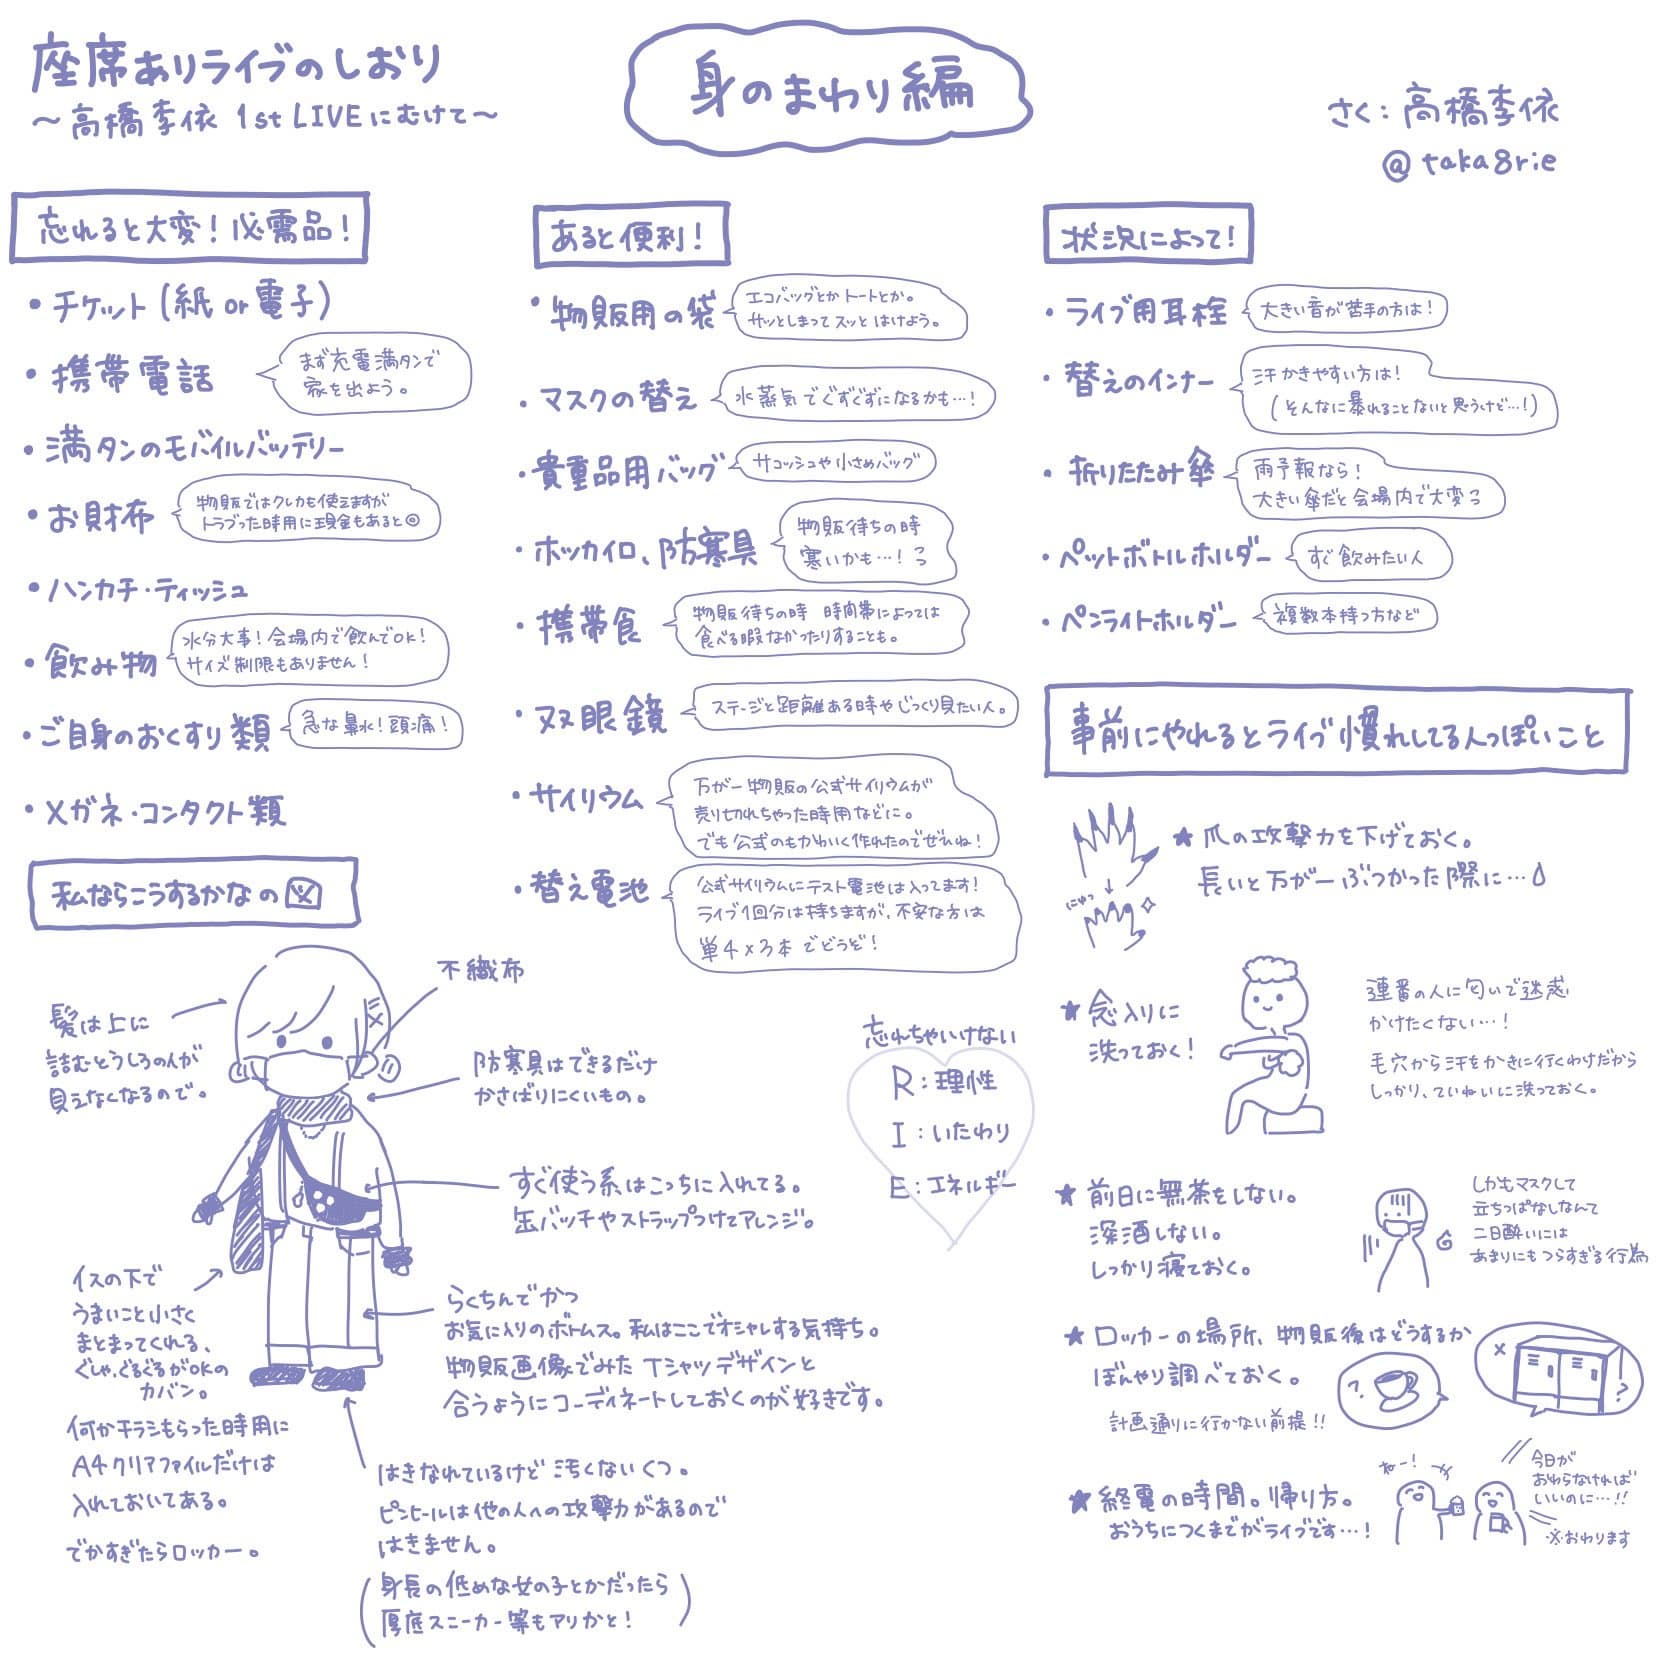 座席ありライブのしおり
〜高橋李依 1st LIVEにむけて〜
身のまわり編
さく：高橋李依
@taka8rie
忘れると大変！必需品！
・チケット（紙or電子）
・携帯電話
まず充電満タンで
家を出よう。
・満タンのモバイルバッテリー
・お財布
物販ではクレカも使えますが
トラブった時用に現金もあると◎
・ハンカチ・ティッシュ
・飲み物
水分大事！会場内で飲んでOK！
サイズ制限もありません！
・ご自身のおくすり類
急な鼻水！頭痛！
・メガネ・コンタクト類
あると便利！
・物販用の袋
エコバッグとかトートとか。
サッとしまってスッとはけよう。
・マスクの替え
水蒸気でぐずぐずになるかも…！
・貴重品用バッグ
サコッシュや小さめバッグ
・ホッカイロ、防寒具
物販待ちの時
寒いかも…！
・携帯食
物販待ちの時 時間帯によっては
食べる暇なかったりすることも。
・双眼鏡
ステージと距離ある時やじっくり見たい人。
・サイリウム
万が一物販の公式サイリウムが
売り切れちゃった時用などに。
でも公式のもかわいく作れたのでぜひね！
・替え電池
公式サイリウムにテスト電池は入ってます！
ライブ1回分は持ちますが、不安な方は
単4×3本でどうぞ！
状況によって！
・ライブ用耳栓
大きい音が苦手の方は！
・替えのインナー
汗かきやすい方は！
（そんなに暴れることないと思うけど…！）
・折りたたみ傘
雨予報なら！
大きい傘だと会場内で大変
・ペットボトルホルダー
すぐ飲みたい人
・ペンライトホルダー
複数本持つ方など
私ならこうするかなの図
髪は上に
詰むとうしろの人が
見えなくなるので。
不織布
防寒具はできるだけ
かさばりにくいもの。
すぐ使う系はこっちに入れてる。
缶バッチやストラップつけてアレンジ。
イスの下で
うまいこと小さく
まとまってくれる、
ぐしゃぐるぐるがOKの
カバン。
何かチラシもらった時用に
A4クリアファイルだけは
入れておいてある。
でかすぎたらロッカー。
らくちんでかつ
お気に入りのボトムス。私はここでオシャレする気持ち。
物販画像でみたTシャツデザインと
合うようにコーディネートしておくのが好きです。
はきなれているけど汚くないくつ。
ピンヒールは他の人への攻撃力があるので
はきません。
（身長の低めな女の子とかだったら
厚底スニーカー等もアリかと！）
忘れちゃいけない
R：理性
I：いたわり
E：エネルギー
事前にやれるとライブ慣れしてる人っぽいこと
★爪の攻撃力を下げておく。
長いと万が一ぶつかった際に…
にゅっ
★念入りに
洗っておく！
連番の人に匂いで迷惑
かけたくない…！
毛穴から汗をかきに行くわけだから
しっかり、ていねいに洗っておく。
★前日に無茶をしない。
深酒しない。
しっかり寝ておく。
しかもマスクして
立ちっぱなしなんて
二日酔いには
あまりにもつらすぎる行為
★ロッカーの場所、物販後はどうするか
ぼんやり調べておく。
計画通りに行かない前提!!
？
×
？
★終電の時間。帰り方。
おうちにつくまでがライブです…！
ねー！
今日が
おわらなければ
いいのに…!!
※おわります